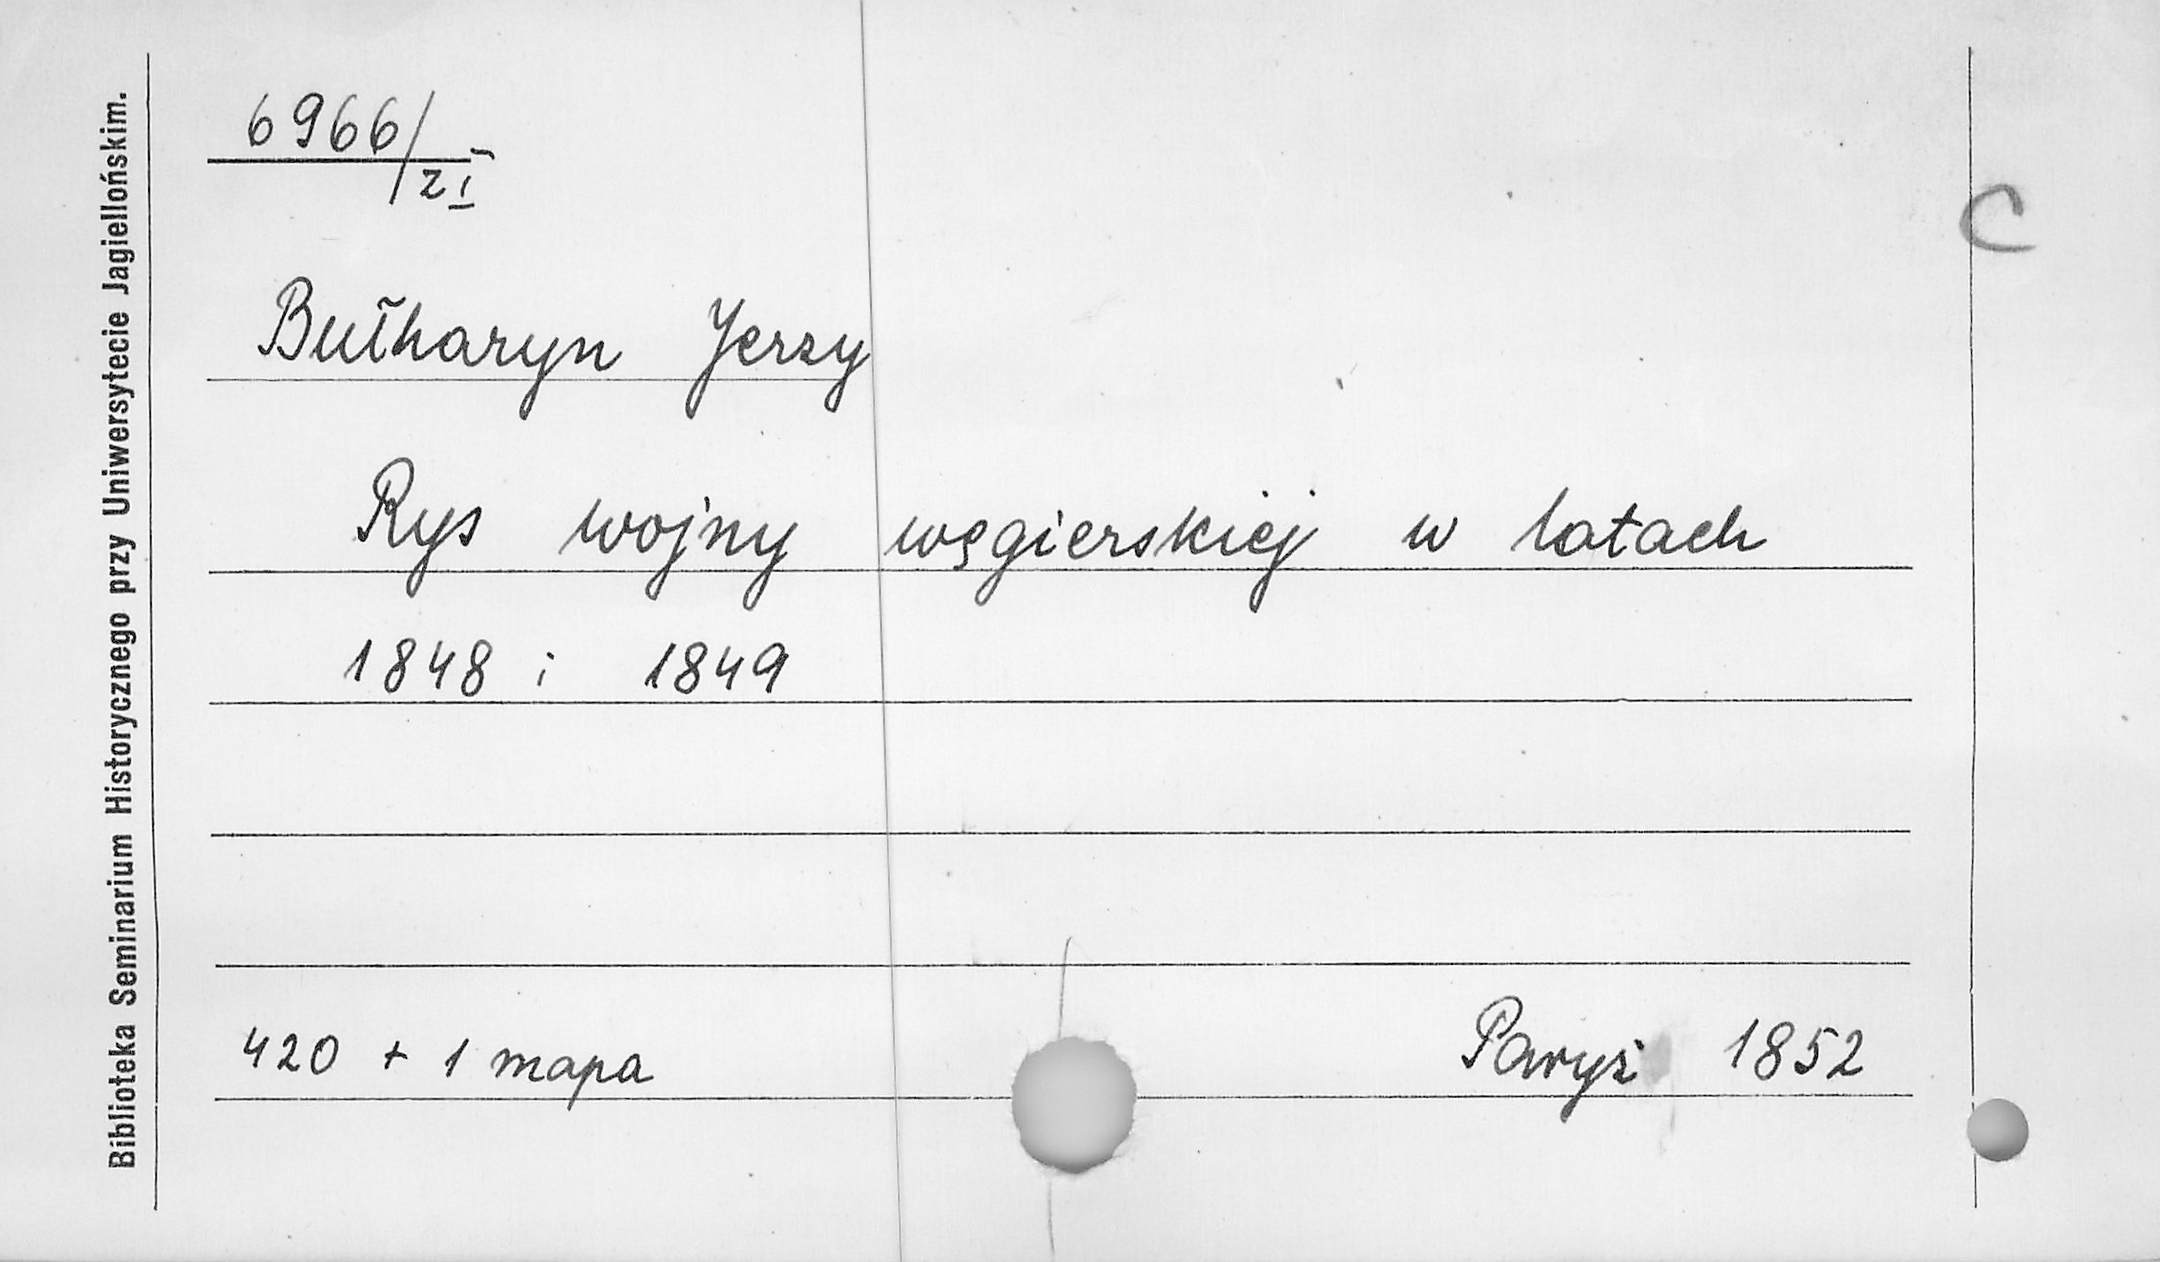 Biblioteka Seminarium Historycznego przy Uniwersytecie Jagiellońskim.
6966/
z I
C
Bułharyn Jerzy
Rys wojny węgierskiej w latach
1848 i 1849
420 + 1 mapa
Paryż 1852